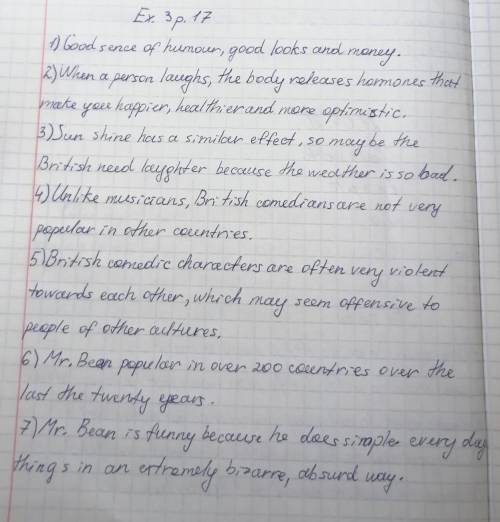 Ex. 3 p. 17
1) Good sence of humour, good looks and money.
2) When a person laughs, the body releases hormones that
make you happier, healthier and more optimistic.
3) Sun shine has a similar effect, so may be the
British need layghter because the weather is so bad.
4) Unlike musicians, British comedians are not very
popular in other countries.
5) British comedic characters are often very violent
towards each other, which may seem offensive to
people of other cultures.
6) Mr. Bean popular in over 200 countries over the
last the twenty years.
7) Mr. Bean is funny because he does simple every day
things in an extremely bizarre, absurd way.